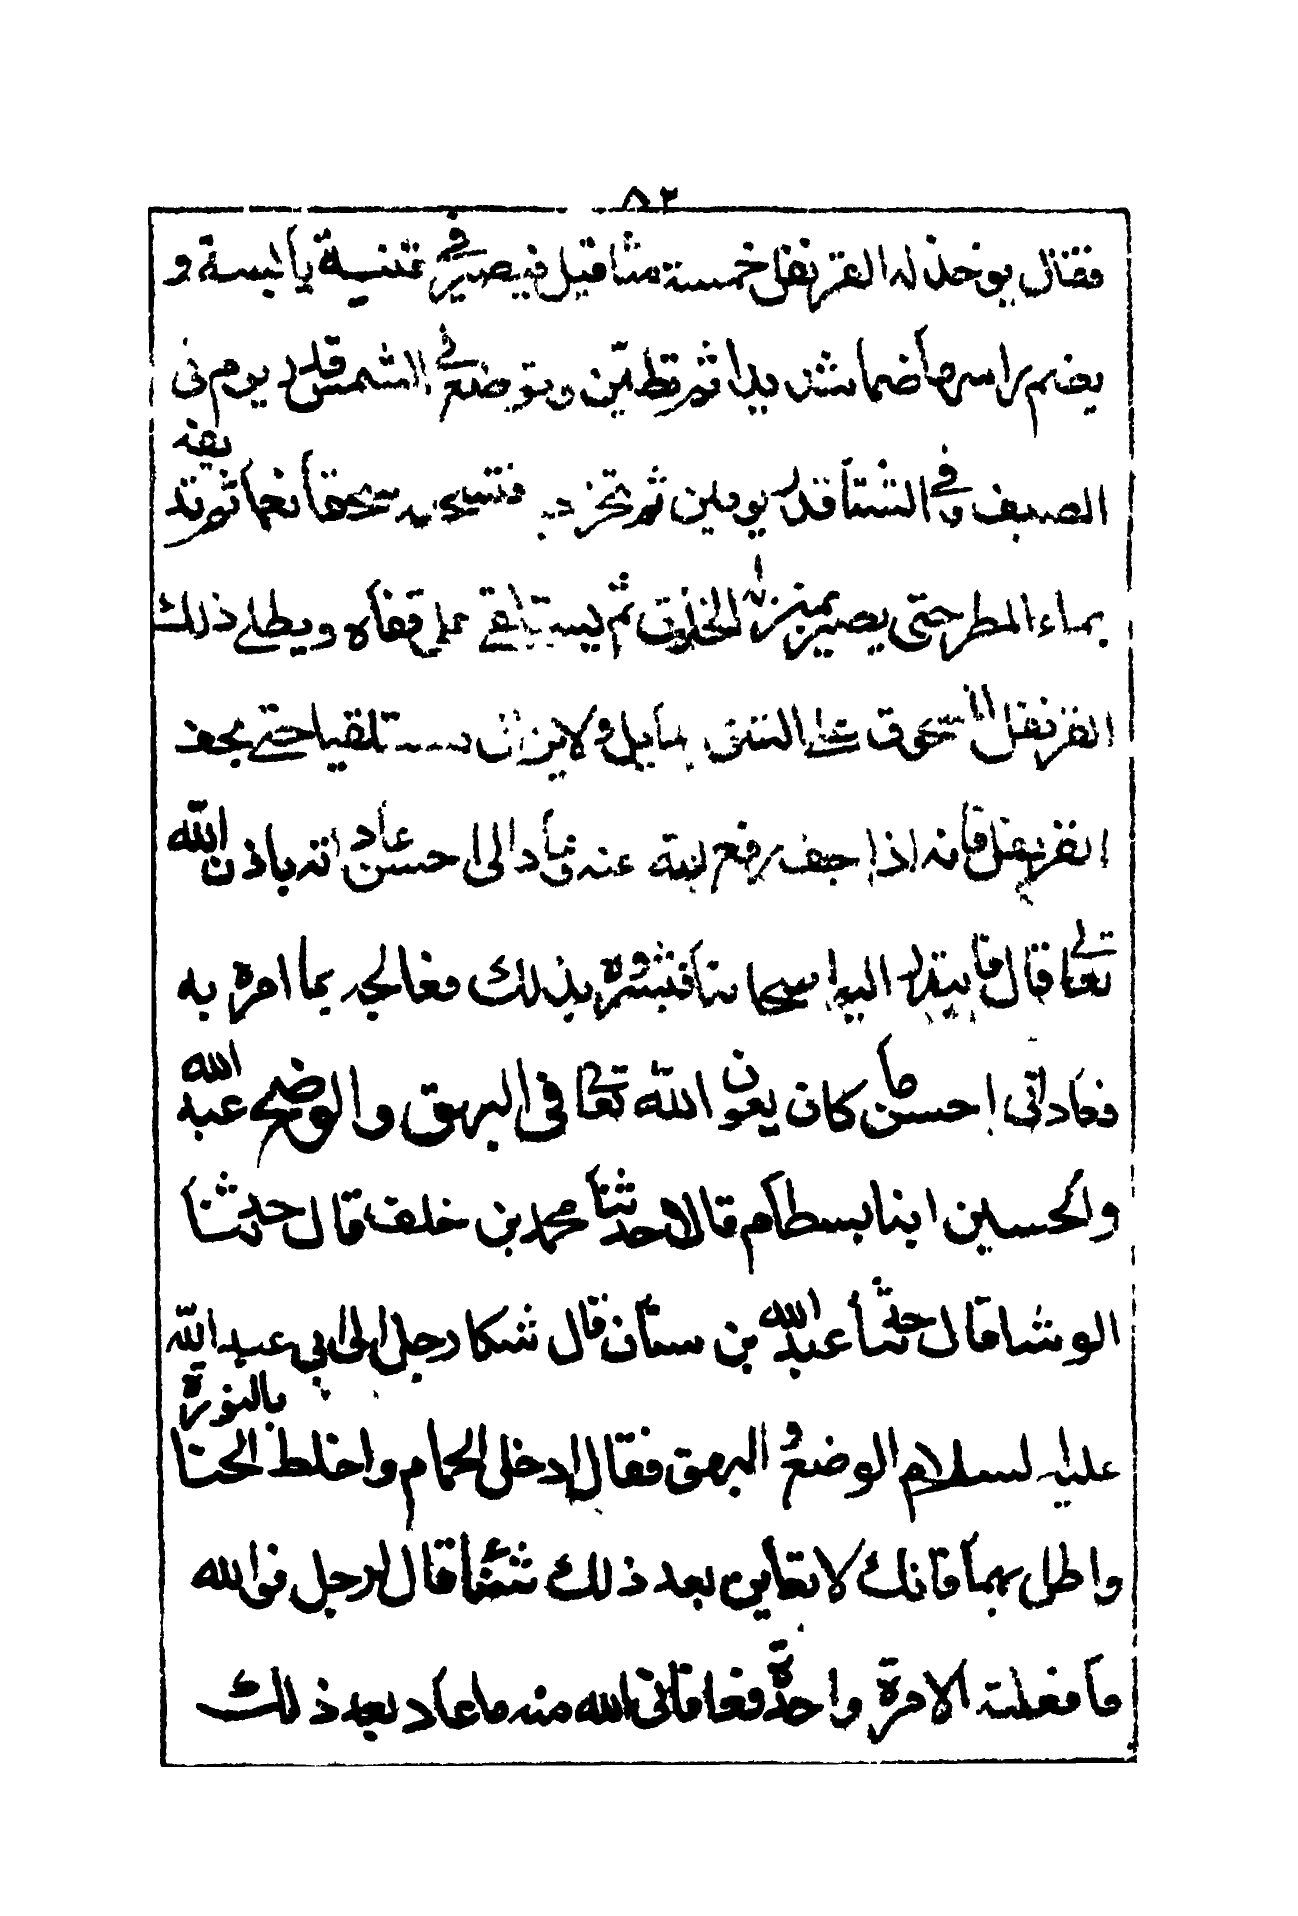 ٨٢
فقال يوخذ له القرنفل خمسة مثاقيل فيصير في قنينة يابسة و
يضم راسها ضما شديدا ثم تطين وتوضع في الشمس قدر يوم في
الصيف وفي الشتا قدر يومين ثم تخرجه فتسحقه سحقا نعما ثم تدیفه
بماء المطر حتى يصير بمنزلة الخلوق ثم يستلقي على قفاه ويطلي ذلك
القرنفل المسحوق على الشق المايل ولا يزال مستلقيا حتى يجف
القرنفل فانه اذا جف رفع الله عنه وعاد الى احسن عادته باذن الله
تعالى قال فابتدر اليه اصحابنا فبشروه بذلك فعالجه بما امره به
فعاد الى احسن ما كان بعون الله تعالى في البهق والوضح عبد الله
والحسين ابنا بسطام قالا حدثنا محمد بن خلف قال حدثنا
الوشا قال حدثنا عبدالله بن سنان قال شكا رجل الى ابي عبد الله
عليه السلام الوضح و البهق فقال ادخل الحمام واخلط الحنا بالنورة
واطل بهما فانك لا تعاين بعد ذلك شيئا قال الرجل فوالله
ما فعلته الا مرة واحدة فعافاني الله منه ما عاد بعد ذلك